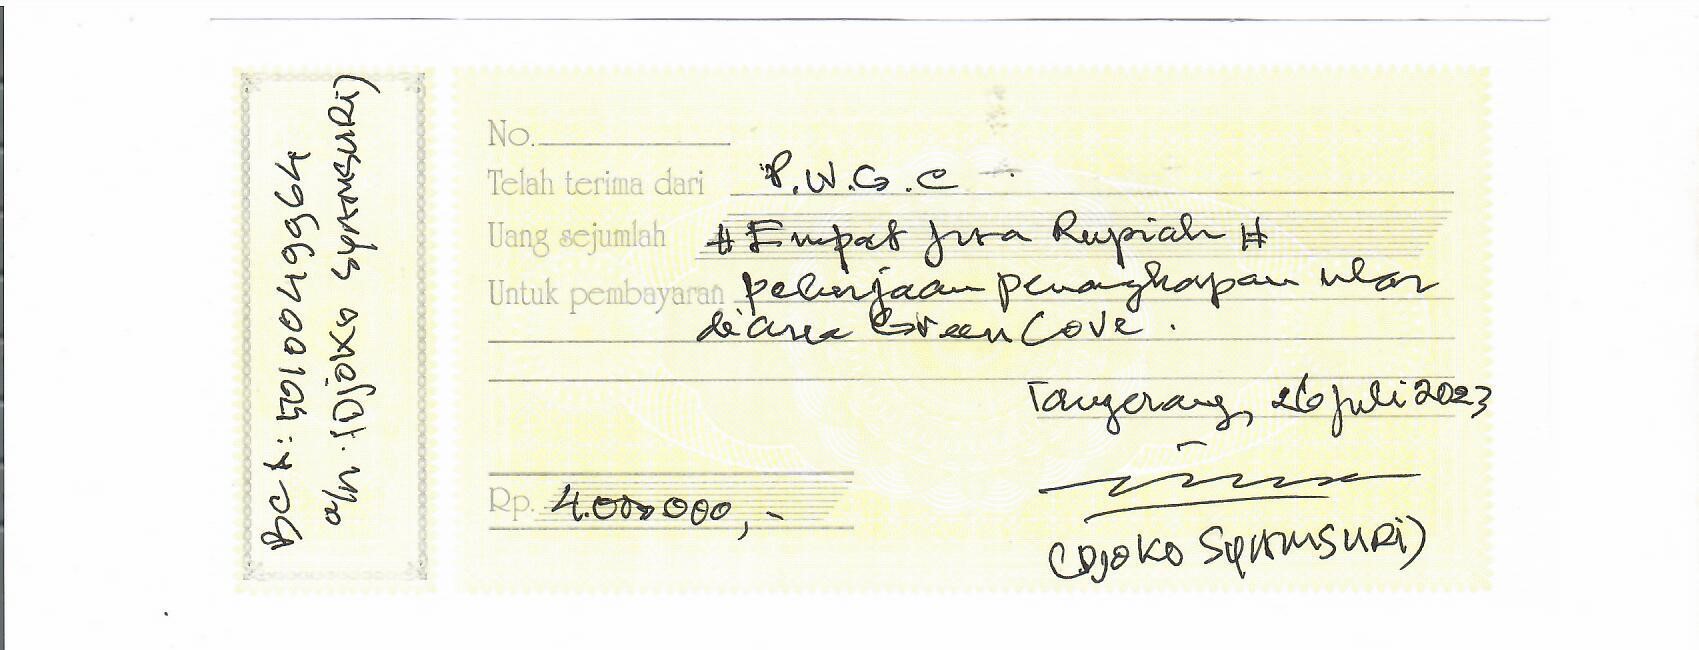 BCA: 5010049964
a/n. (Djoko SYAMSURi)
No.
Telah terima dari P.W.G.C
Uang sejumlah # Empat juta Rupiah #
Untuk pembayaran pekerjaan penangkapan ular
di area Green Cove.
Tangerang, 26 Juli 2023
Rp. 4.000.000,-
(DJOKO SYAMSURi)